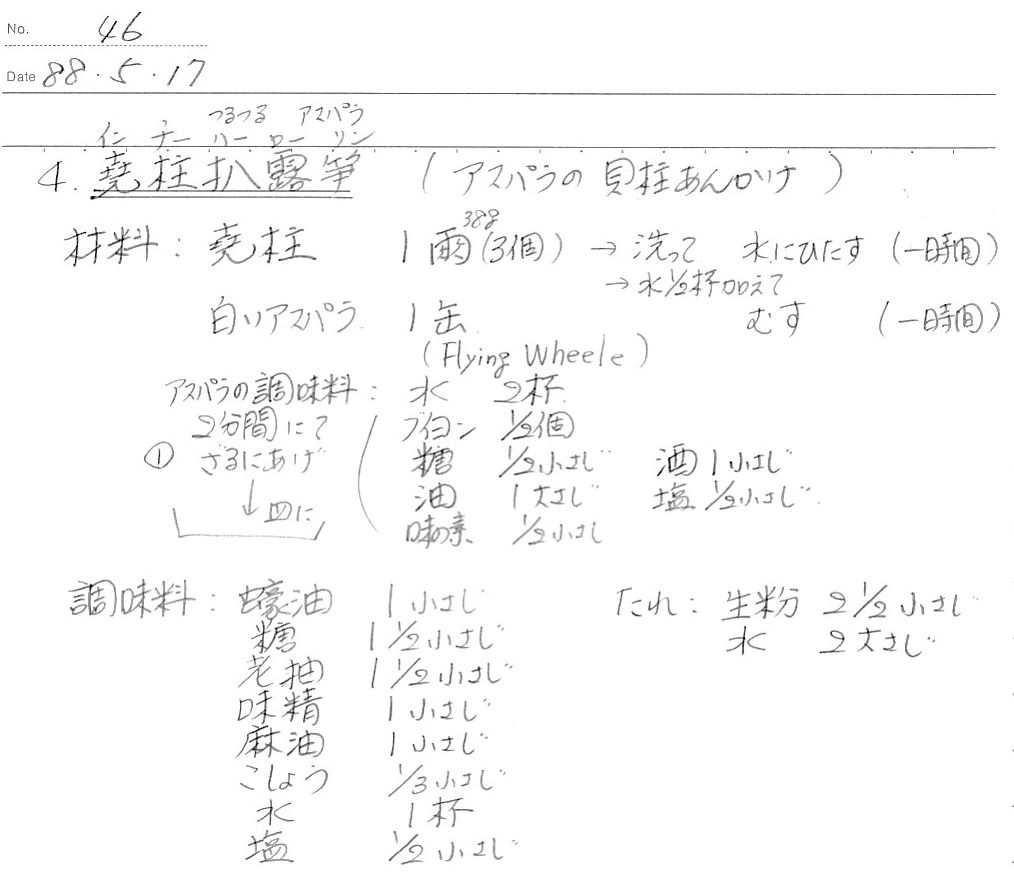 No. 46
Date 88・5・17
つるつる アスパラ
イン チー ハー ロー ソン
4. 堯柱扒露笋 (アスパラの貝柱あんかけ)
38g
材料: 堯柱 1両(3個) → 洗って 水にひたす (一時間)
→ 水1/2杯加えて
白いアスパラ 1缶 むす (一時間)
(Flying Wheele)
アスパラの調味料: 水 2杯
2分間にて ブイヨン 1/2個
① ざるにあげ 糖 1/2小さじ 酒 1小さじ
↓皿に 油 1大さじ 塩 1/2小さじ
味の素 1/2小さじ
調味料: 蠔油 1小さじ たれ: 生粉 2 1/2小さじ
糖 1 1/2小さじ 水 2大さじ
老抽 1 1/2小さじ
味精 1小さじ
麻油 1小さじ
こしょう 1/3小さじ
水 1杯
塩 1/2小さじ